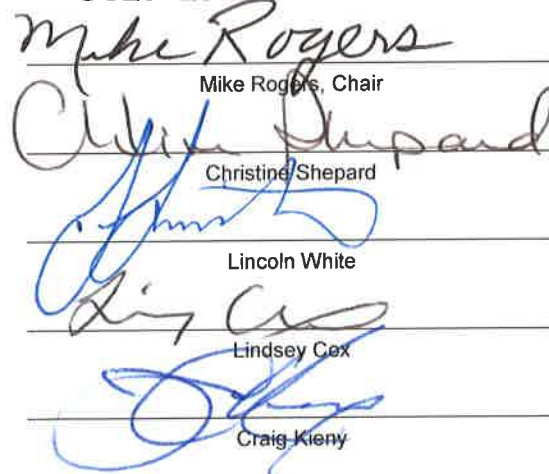 Mike Rogers
Mike Rogers, Chair
Christine Shepard
Christine Shepard
Lincoln White
Lindsey Cox
Craig Kieny